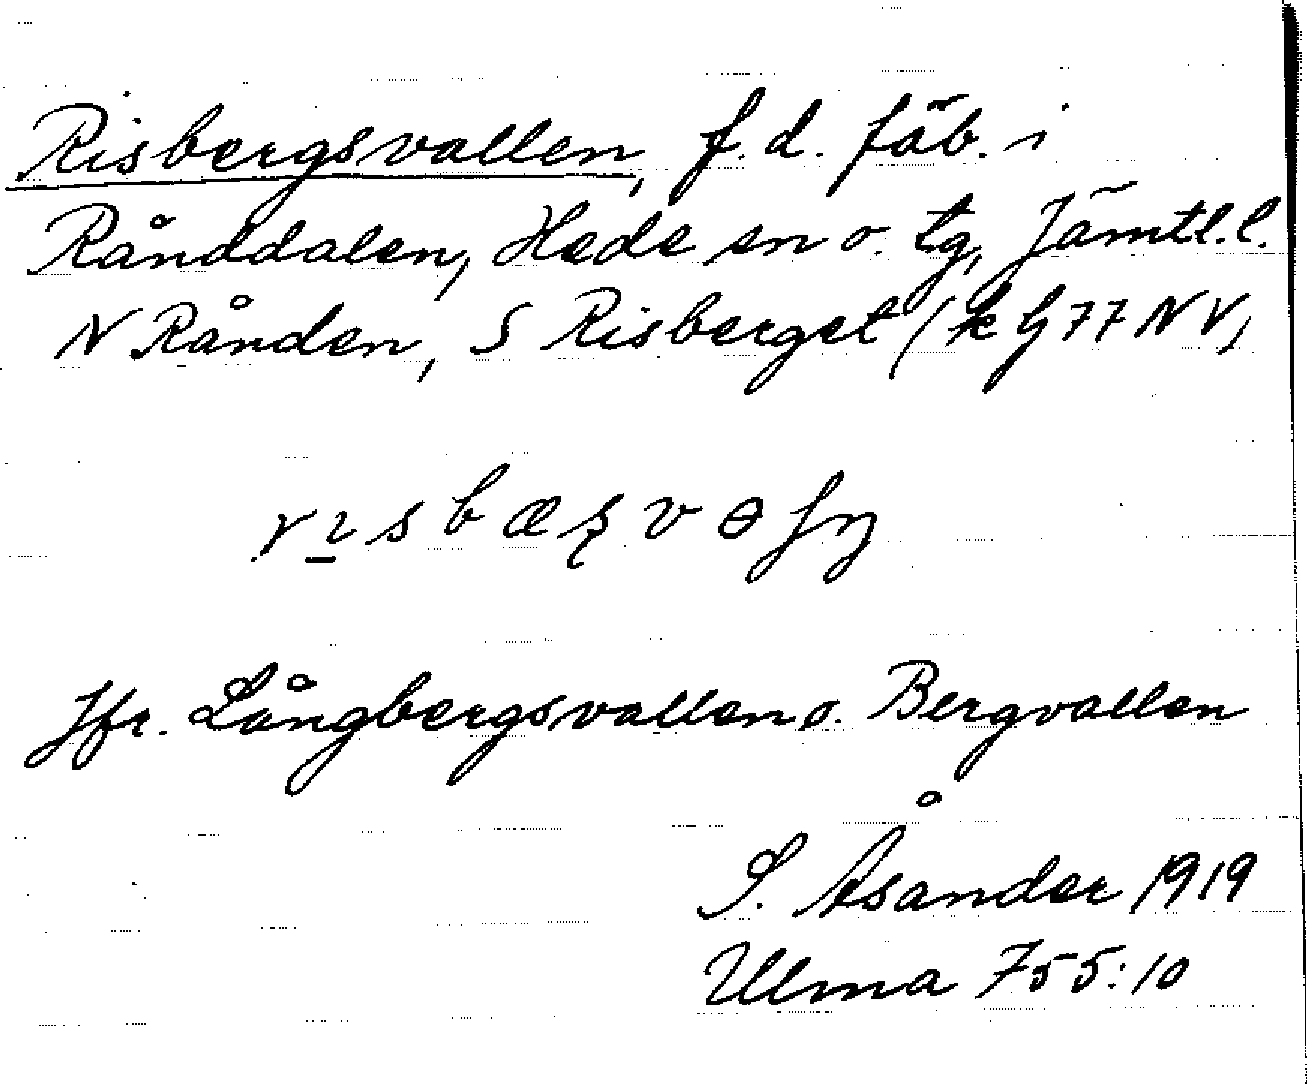 Risbergsvallen, f.d. fäb. i
Rånddalen, Hede sn o. tg, Jämtl.l.
N Rånden, S Risberget (k G 77 N V)
Jfr. Långbergsvallen o. Bergvallen
S. Åsander 1919
Ulma 755:10